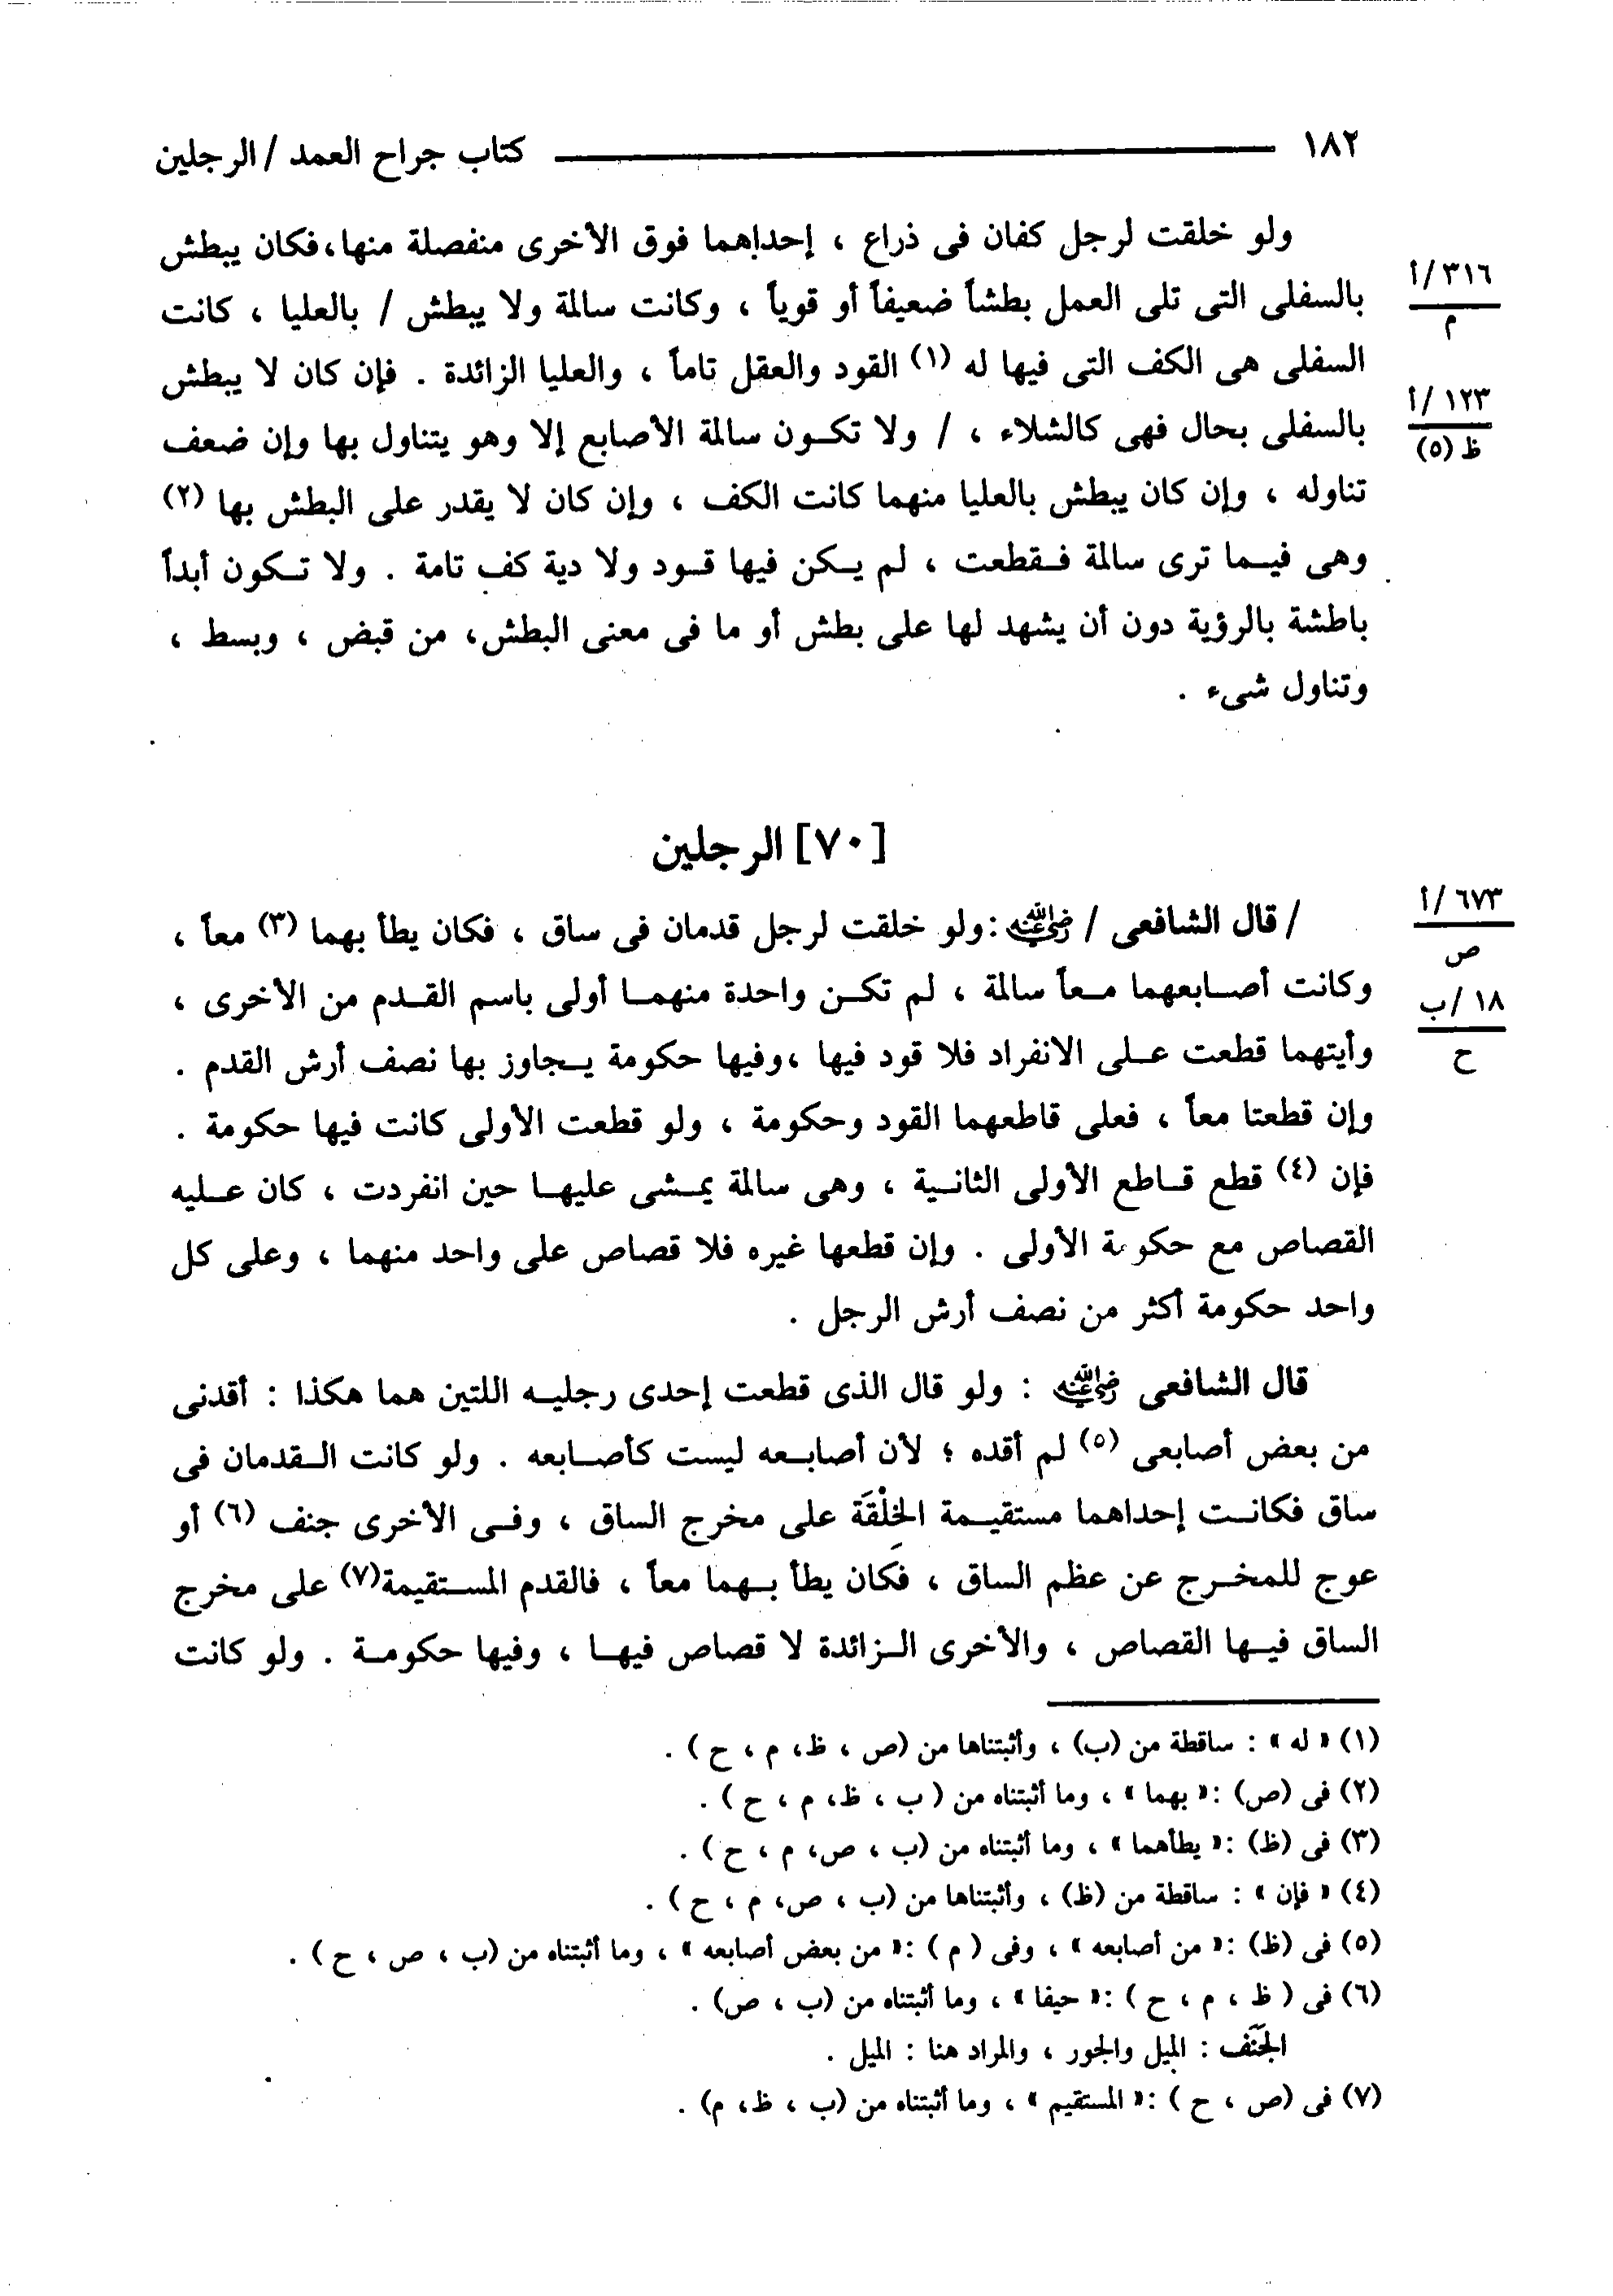 ١٨٢ ــــــــــــــــــــ كتاب جراح العمد / الرجلين
ولو خلقت لرجل كفان فى ذراع ، إحداهما فوق الأخرى منفصلة منها، فكان يبطش
٣١٦/أ
م
بالسفلى التى تلى العمل بطشاً ضعيفاً أو قوياً ، وكانت سالمة ولا يبطش / بالعليا ، كانت
السفلى هى الكف التى فيها له (١) القود والعقل تاماً ، والعليا الزائدة . فإن كان لا يبطش
١٢٣/أ
ظ (٥)
بالسفلى بحال فهى كالشلاء ، / ولا تكون سالمة الأصابع إلا وهو يتناول بها وإن ضعف
تناوله ، وإن كان يبطش بالعليا منهما كانت الكف ، وإن كان لا يقدر على البطش بها (٢)
وهى فيما ترى سالمة فقطعت ، لم يكن فيها قود ولا دية كف تامة . ولا تكون أبداً
باطشة بالرؤية دون أن يشهد لها على بطش أو ما فى معنى البطش، من قبض ، وبسط ،
وتناول شىء .
[٧٠] الرجلين
٦٧٣/أ
ص
/ قال الشافعى / رضي الله عنه : ولو خلقت لرجل قدمان فى ساق ، فكان يطأ بهما (٣) معاً ،
١٨/ب
ح
وكانت أصابعهما معاً سالمة ، لم تكن واحدة منهما أولى باسم القدم من الأخرى ،
وأيتهما قطعت على الانفراد فلا قود فيها ، وفيها حكومة يجاوز بها نصف أرش القدم .
وإن قطعتا معاً ، فعلى قاطعهما القود وحكومة ، ولو قطعت الأولى كانت فيها حكومة .
فإن (٤) قطع قاطع الأولى الثانية ، وهى سالمة يمشى عليها حين انفردت ، كان عليه
القصاص مع حكومة الأولى . وإن قطعها غيره فلا قصاص على واحد منهما ، وعلى كل
واحد حكومة أكثر من نصف أرش الرجل .
قال الشافعى رضي الله عنه : ولو قال الذى قطعت إحدى رجليه اللتين هما هكذا : أقدنى
من بعض أصابعى (٥) لم أقده ؛ لأن أصابعه ليست كأصابعه . ولو كانت القدمان فى
ساق فكانت إحداهما مستقيمة الخِلْقَة على مخرج الساق ، وفى الأخرى جنف (٦) أو
عوج للمخرج عن عظم الساق ، فَكان يطأ بهما معاً ، فالقدم المستقيمة(٧) على مخرج
الساق فيها القصاص ، والأخرى الزائدة لا قصاص فيها ، وفيها حكومة . ولو كانت
(١) « له » : ساقطة من (ب) ، وأثبتناها من (ص ، ظ، م ، ح ) .
(٢) فى (ص) :« بهما » ، وما أثبتناه من ( ب ، ظ، م ، ح ) .
(٣) فى (ظ) :« يطأهما » ، وما أثبتناه من (ب ، ص، م ، ح ) .
(٤) « فإن » : ساقطة من (ظ) ، وأثبتناها من (ب ، ص، م ، ح ) .
(٥) فى (ظ) :« من أصابعه » ، وفى ( م ) :« من بعض أصابعه » ، وما أثبتناه من (ب ، ص ، ح ) .
(٦) فى ( ظ ، م ، ح ) :« حيفا » ، وما أثبتناه من (ب ، ص) .
الجَنَف : الميل والجور ، والمراد هنا : الميل .
(٧) فى (ص ، ح ) :« المستقيم » ، وما أثبتناه من (ب ، ظ، م) .